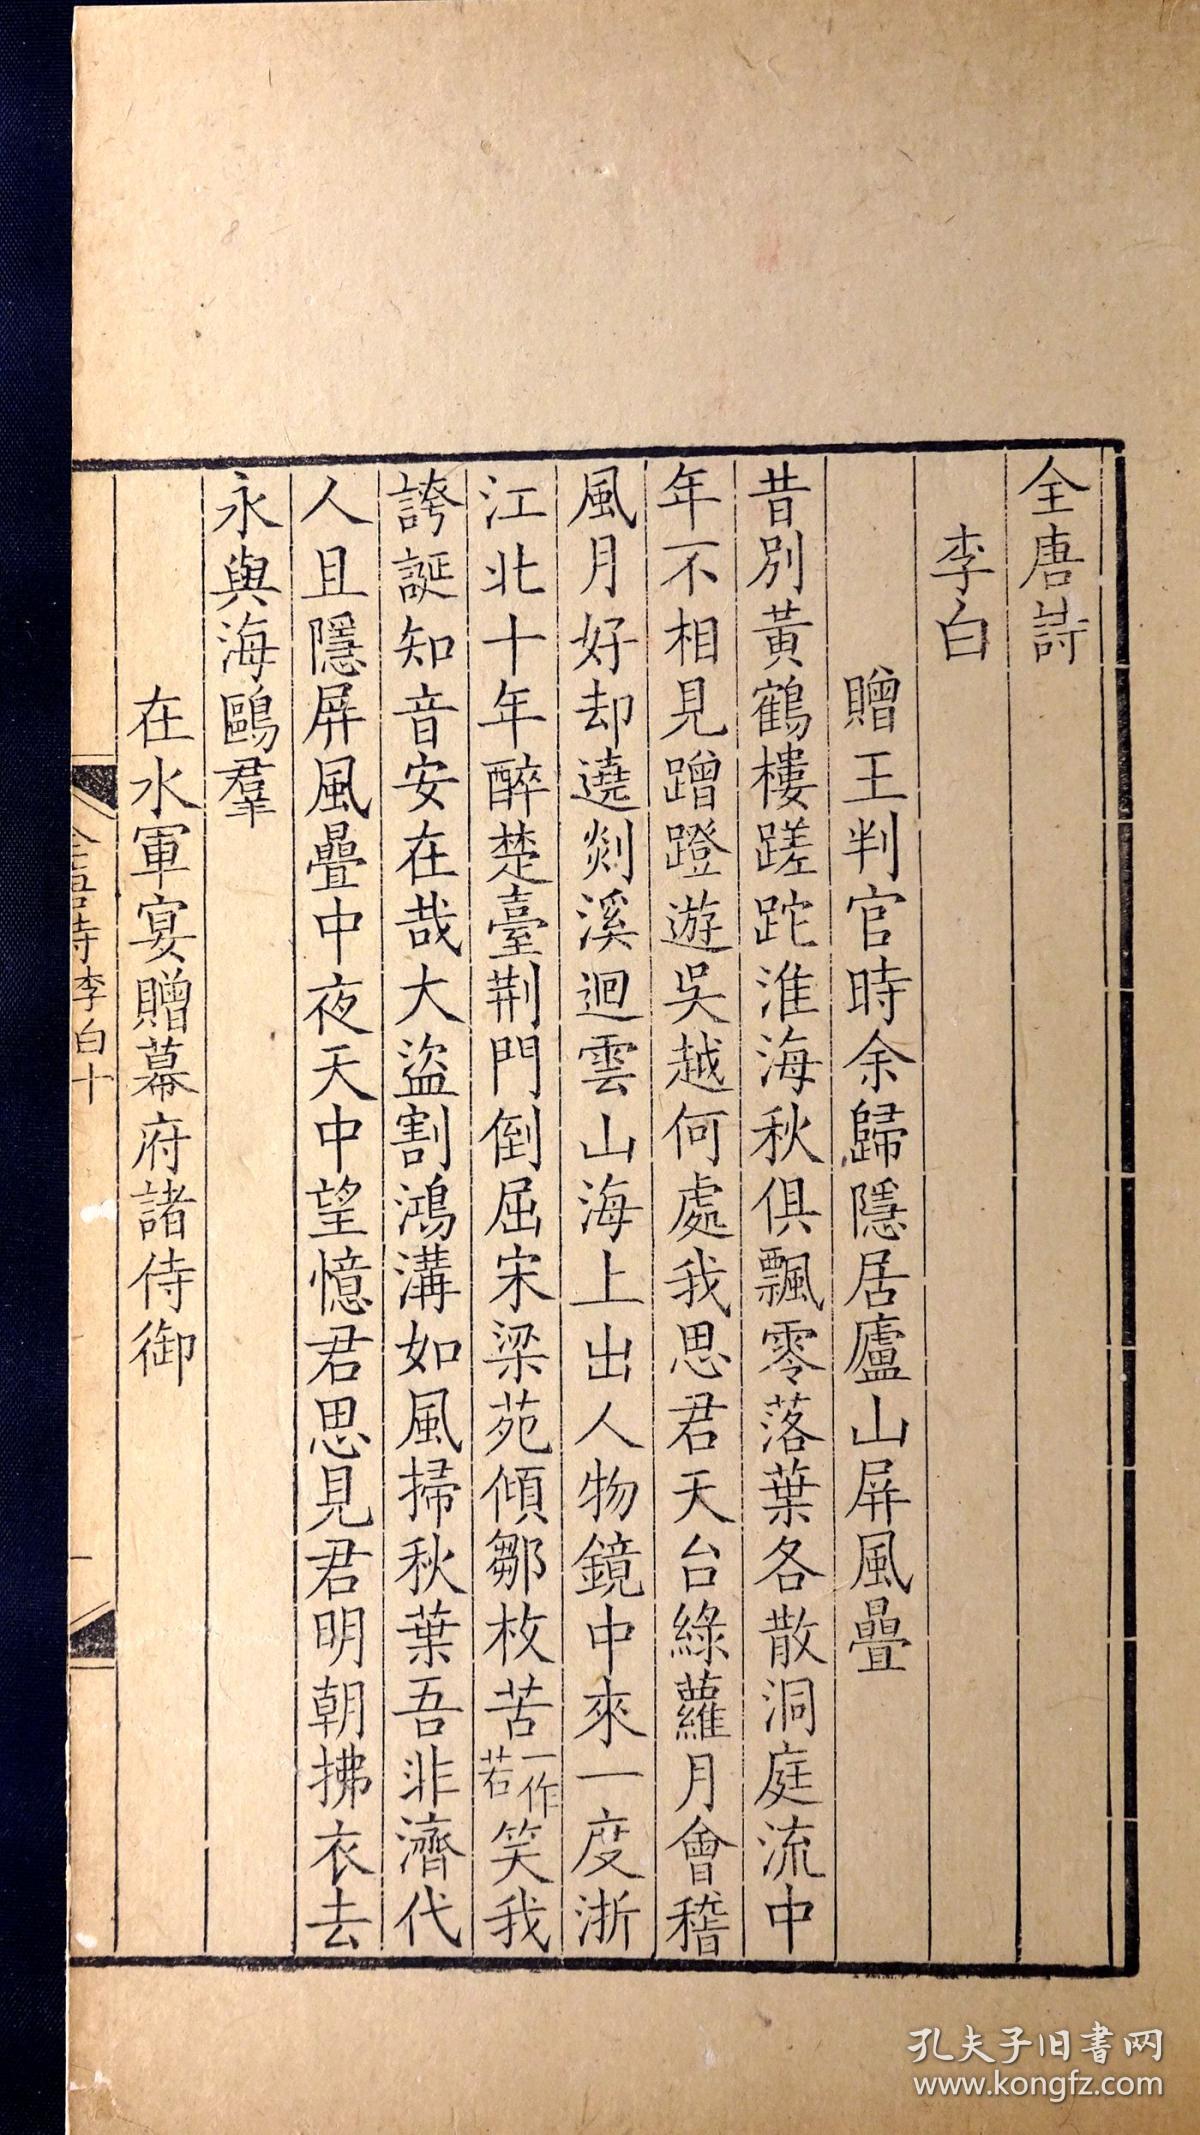 全唐詩
李白
贈王判官時余歸隱居廬山屏風疊
昔別黃鶴樓蹉跎淮海秋俱飄零落葉各散洞庭流中
年不相見蹭蹬遊吳越何處我思君天台綠蘿月會稽
風月好却遶剡溪迴雲山海上出人物鏡中來一度浙
江北十年醉楚臺荆門倒屈宋梁苑傾鄒枚苦一作若笑我
誇誕知音安在哉大盜割鴻溝如風掃秋葉吾非濟代
人且隱屏風疊中夜天中望憶君思見君明朝拂衣去
永與海鷗羣
在水軍宴贈幕府諸侍御
全唐詩李白十
一
孔夫子旧書网
www.kongfz.com